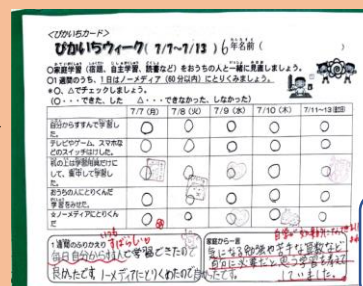 <ぴかいちカード>
ぴかいちウィーク(7/7~7/13)6年名前(
○家庭学習(宿題、自主学習、読書など)をおうちの人と一緒に見直しましょう。
○1週間のうち、1日はノーメディア(60分以内)にとりくみましょう。
*○、△でチェックしましょう。
(○・・・できた、した △・・・できなかった、しなかった)
7/7(月) 7/8(火) 7/9(水) 7/10(木) 7/11~13
自分からすすんで学習した。 ○ ○ ○ ○ ○
テレビやゲーム、スマホなどのスイッチはけした。 ○ ○ ○ ○ ○
机の上は学習用具だけにして、集中して学習した。 ○ ○ ○ ○ ○
おうちの人にとりくんだ学習をみせた。 ○ ○ ○ ○ ○
☆ノーメディアにとりくんだ ○ ○ ○ ○ ○
1週間のふりかえり
すばらしい
毎日自分から進んで学習できたので
良かったです。ノーメディアにとりくめたので良かったです。
家庭から一言
気になる勉強や苦手な算数など
自分に必要だと思う学習を考えて
していました。